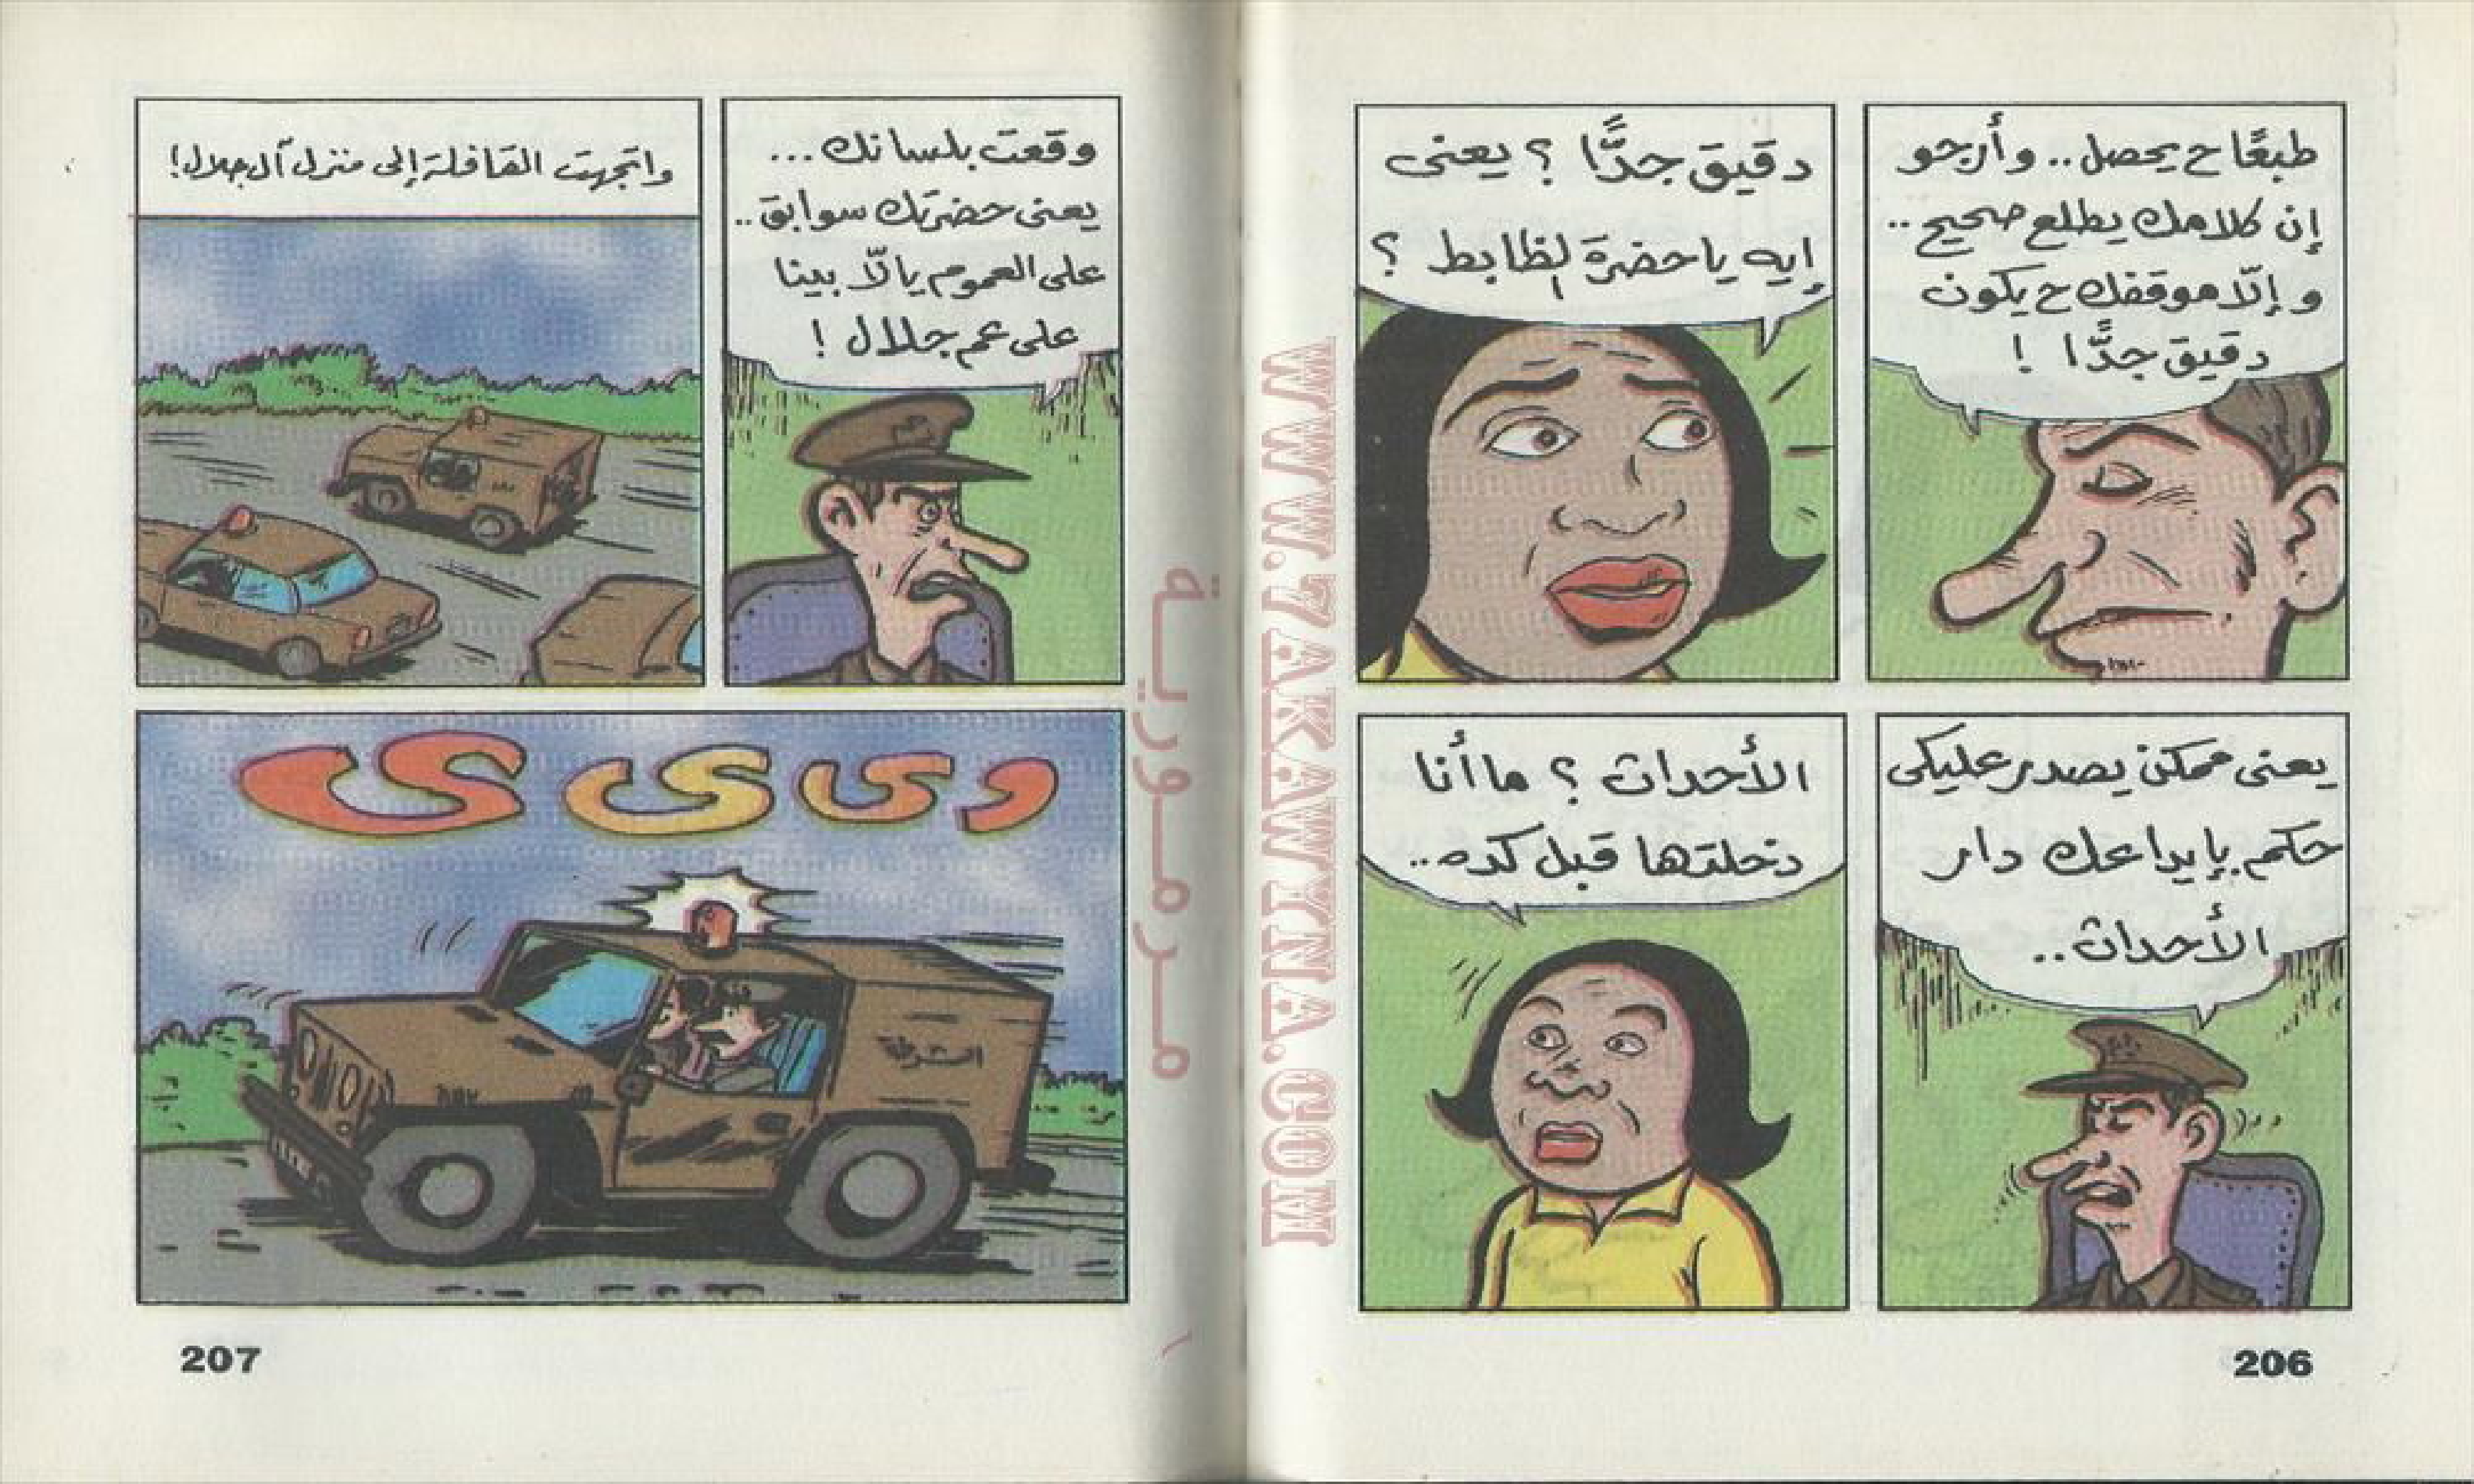 طبعًا ح يحصل.. وأرجو
إن كلامك يطلع صحيح..
وإلّا موقفك ح يكون
دقيق جدًّا !
دقيق جدًّا ؟ يعنى
إيه يا حضرة الظابط ؟
يعنى ممكن يصدر عليكى
حكم بإيداعك دار
الأحداث..
الأحداث ؟ ما أنا
دخلتها قبل كده..
206
WWW.7AKAWYNA.COM
مرمورية
وقعت بلسانك...
يعنى حضرتك سوابق..
على العموم يالّا بينا
على عم جلال !
واتجهت القافلة إلى منزل آل جلال!
وى ى ى
الشرطة
207